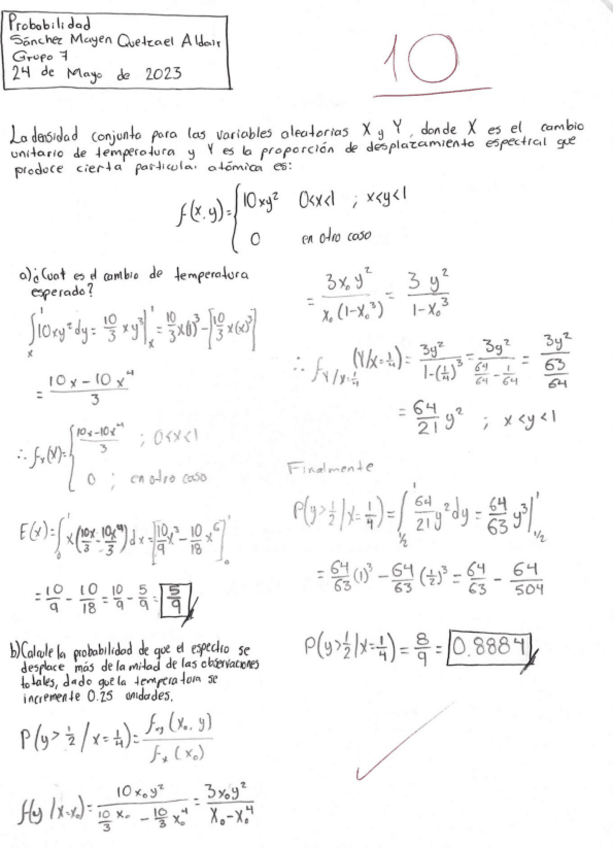 Probabilidad
Sánchez Mayen Quetzael Aldair
Grupo 7
24 de Mayo de 2023
10
La densidad conjunta para las variables aleatorias X y Y, donde X es el cambio
unitario de temperatura y Y es la proporción de desplazamiento espectral que
produce cierta particula atómica es:
f(x,y)= { 10xy² 0<x<1 ; x<y<1
0 en otro caso
a)¿Cual es el cambio de temperatura
esperado?
∫ₓ¹ 10xy² dy = 10/3 xy³ |ₓ¹ = 10/3 x(1)³ - [10/3 x(x)³]
= (10x - 10x⁴)/3
∴ fₓ(X) = { (10x-10x⁴)/3 ; 0<x<1
0 ; en otro caso
E(x) = ∫₀¹ x(10x/3 - 10x⁴/3) dx = [10/9 x³ - 10/18 x⁶]₀¹
= 10/9 - 10/18 = 10/9 - 5/9 = 5/9
b)Calcule la probabilidad de que el espectro se
desplace más de la mitad de las observaciones
totales, dado que la temperatura se
incremente 0.25 unidades.
P(y > 1/2 / x = 1/4) = fₓᵧ(x₀, y) / fₓ(x₀)
f(y / x=x₀) = 10x₀y² / (10/3 x₀ - 10/3 x₀⁴) = 3x₀y² / (x₀ - x₀⁴)
= 3x₀y² / x₀(1-x₀³) = 3y² / (1-x₀³)
∴ f_Y/x=1/4 (Y/x=1/4) = 3y² / (1-(1/4)³) = 3y² / (64/64 - 1/64) = 3y² / (63/64)
= 64/21 y² ; x<y<1
Finalmente
P(y>1/2 | x=1/4) = ∫₁/₂¹ 64/21 y² dy = 64/63 y³ |₁/₂¹
= 64/63 (1)³ - 64/63 (1/2)³ = 64/63 - 64/504
P(y>1/2 | x=1/4) = 8/9 = 0.8884